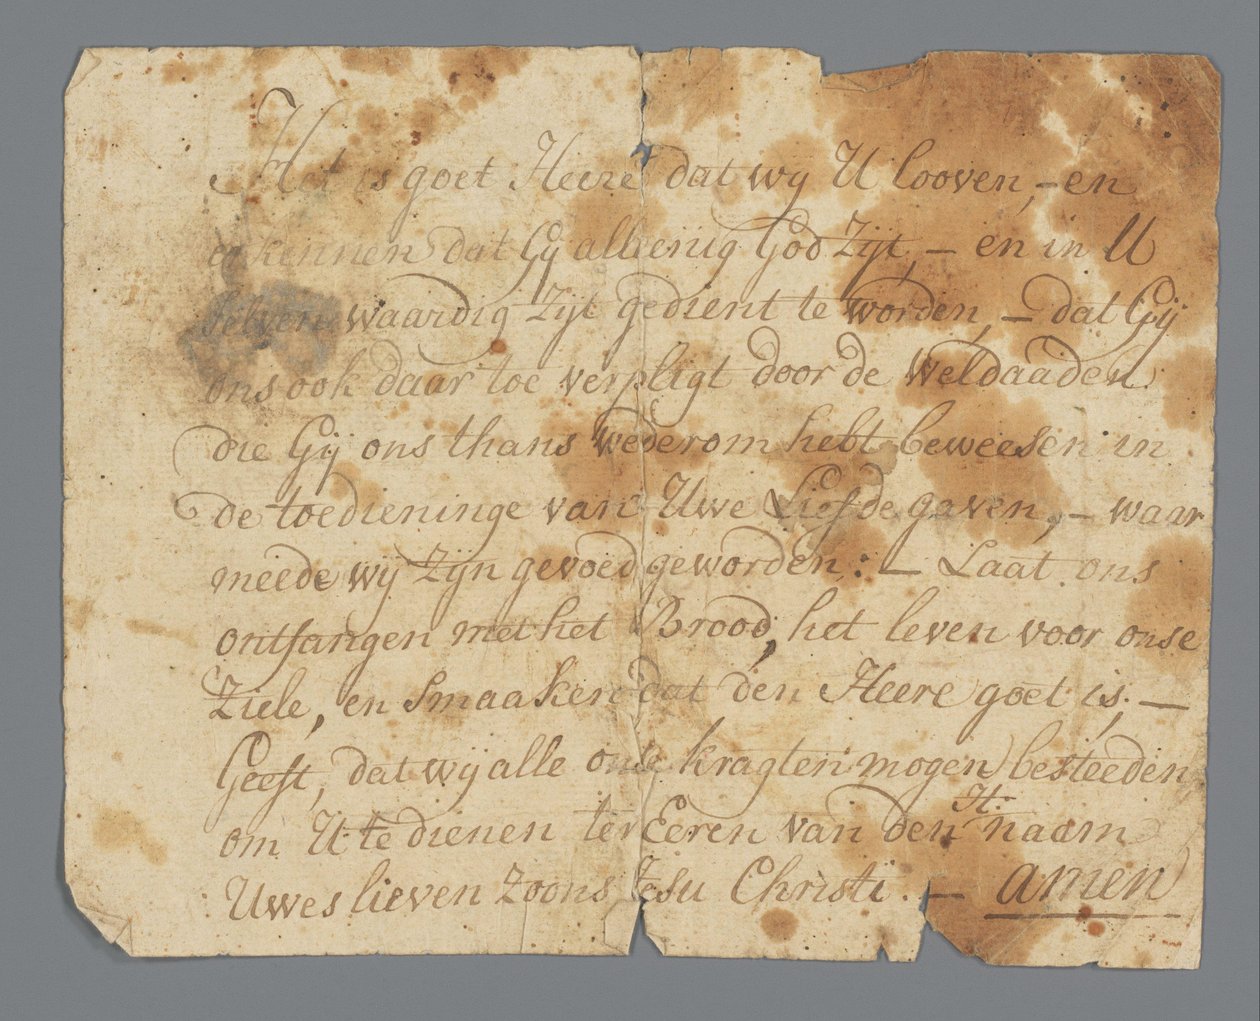 Het is goet Heere dat wy U looven, – en
erkennen dat Gy alleenig God Zijt, – en in U
selven waardig Zijt gedient te worden, – dat Gij
ons ook daar toe verpligt door de weldaaden
die Gij ons thans wederom hebt beweesen in
de toedieninge van Uwe Liefde gaven, – waar
meede wij Zijn gevoed geworden: – Laat ons
ontfangen met het Brood, het leven voor onse
Ziele, en smaaken dat den Heere goet is; –
Geeft, dat wij alle onse kragten mogen besteeden
om U te dienen ter Eeren van den H. naam
Uwes lieven Zoons Jesu Christi. – amen